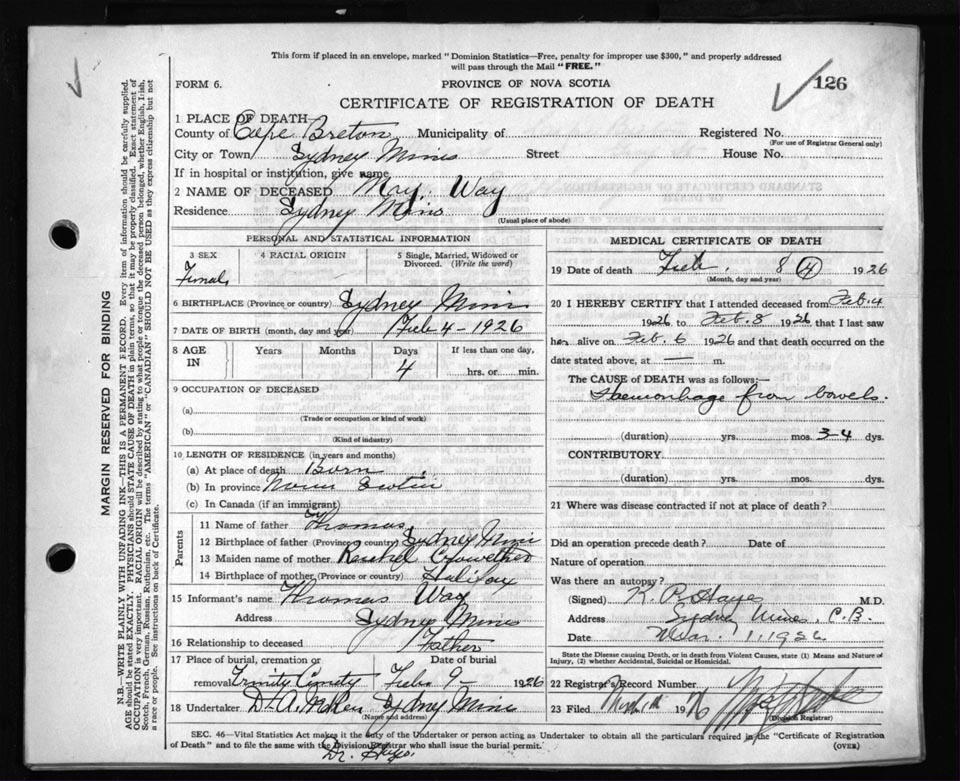 This form if placed in an envelope, marked "Dominion Statistics—Free, penalty for improper use $300," and properly addressed
will pass through the Mail "FREE."
FORM 6.
PROVINCE OF NOVA SCOTIA
126
CERTIFICATE OF REGISTRATION OF DEATH
1 PLACE OF DEATH
County of Cape Breton Municipality of Registered No.
(For use of Registrar General only)
City or Town Sydney Mines Street House No.
If in hospital or institution, give name
2 NAME OF DECEASED May Way
Residence Sydney Mines
(Usual place of abode)
PERSONAL AND STATISTICAL INFORMATION
3 SEX 4 RACIAL ORIGIN 5 Single, Married, Widowed or
Divorced. (Write the word)
Female
6 BIRTHPLACE (Province or country) Sydney Mines
7 DATE OF BIRTH (month, day and year) Feb 4 - 1926
8 AGE IN Years Months Days If less than one day,
4 hrs. or min.
9 OCCUPATION OF DECEASED
(a)
(Trade or occupation or kind of work)
(b)
(Kind of industry)
10 LENGTH OF RESIDENCE (in years and months)
(a) At place of death Born
(b) In province Nova Scotia
(c) In Canada (if an immigrant)
Parents
11 Name of father Thomas
12 Birthplace of father (Province or country) Sydney Mines
13 Maiden name of mother
14 Birthplace of mother (Province or country) Halifax
15 Informant's name Thomas Way
Address Sydney Mines
16 Relationship to deceased Father
17 Place of burial, cremation or Date of burial
removal Trinity Feb 9 - 1926
18 Undertaker Sydney Mines
(Name and address)
MEDICAL CERTIFICATE OF DEATH
19 Date of death Feb. 8 (4) 1926
(Month, day and year)
20 I HEREBY CERTIFY that I attended deceased from Feb. 4
1926 to Feb. 8 1926 that I last saw
her alive on Feb. 6 1926 and that death occurred on the
date stated above, at — m.
The CAUSE OF DEATH was as follows:—
Haemorrhage from bowels.
(duration) yrs. mos. 3-4 dys.
CONTRIBUTORY
(duration) yrs. mos. dys.
21 Where was disease contracted if not at place of death?
Did an operation precede death? Date of
Nature of operation
Was there an autopsy?
(Signed) K. P. Hayes M.D.
Address Sydney Mines, C.B.
Date Mar. 1, 1926
State the Disease causing Death, or in death from Violent Causes, state (1) Means and Nature of
Injury, (2) whether Accidental, Suicidal or Homicidal.
22 Registrar's Record Number
23 Filed 1926
(Division Registrar)
SEC. 46—Vital Statistics Act makes it the duty of the Undertaker or person acting as Undertaker to obtain all the particulars required in the "Certificate of Registration
of Death" and to file the same with the Division Registrar who shall issue the burial permit.
(OVER)
Dr. Hayes.
MARGIN RESERVED FOR BINDING
N.B.—WRITE PLAINLY WITH UNFADING INK—THIS IS A PERMANENT RECORD. Every item of information should be carefully supplied.
AGE should be stated EXACTLY. PHYSICIANS should STATE CAUSE OF DEATH in plain terms, so that it may be properly classified. Exact statement of
OCCUPATION is very important. RACIAL ORIGIN will be described by stating to what people or tongue the deceased person belonged, whether English, Irish,
Scotch, French, German, Russian, Ruthenian, etc. The terms "AMERICAN" or "CANADIAN" SHOULD NOT BE USED as they express citizenship but not
a race or people. See instructions on back of Certificate.